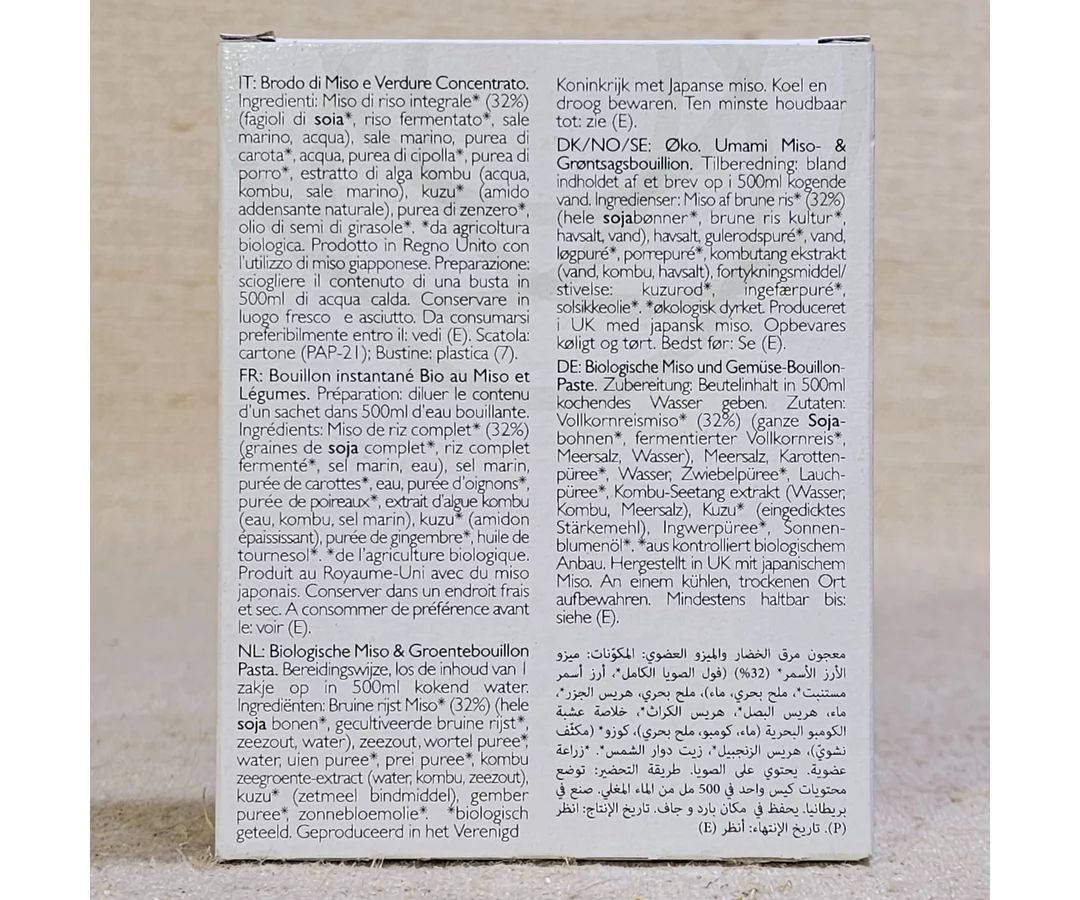 IT: Brodo di Miso e Verdure Concentrato.
Ingredienti: Miso di riso integrale* (32%)
(fagioli di soia*, riso fermentato*, sale
marino, acqua), sale marino, purea di
carota*, acqua, purea di cipolla*, purea di
porro*, estratto di alga kombu (acqua,
kombu, sale marino), kuzu* (amido
addensante naturale), purea di zenzero*,
olio di semi di girasole*. *da agricoltura
biologica. Prodotto in Regno Unito con
l'utilizzo di miso giapponese. Preparazione:
sciogliere il contenuto di una busta in
500ml di acqua calda. Conservare in
luogo fresco e asciutto. Da consumarsi
preferibilmente entro il: vedi (E). Scatola:
cartone (PAP-21); Bustine: plastica (7).
FR: Bouillon instantané Bio au Miso et
Légumes. Préparation: diluer le contenu
d'un sachet dans 500ml d'eau bouillante.
Ingrédients: Miso de riz complet* (32%)
(graines de soja complet*, riz complet
fermenté*, sel marin, eau), sel marin,
purée de carottes*, eau, purée d'oignons*,
purée de poireaux*, extrait d'algue kombu
(eau, kombu, sel marin), kuzu* (amidon
épaississant), purée de gingembre*, huile de
tournesol*. *de l'agriculture biologique.
Produit au Royaume-Uni avec du miso
japonais. Conserver dans un endroit frais
et sec. A consommer de préférence avant
le: voir (E).
NL: Biologische Miso & Groentebouillon
Pasta. Bereidingswijze, los de inhoud van 1
zakje op in 500ml kokend water.
Ingrediënten: Bruine rijst Miso* (32%) (hele
soja bonen*, gecultiveerde bruine rijst*,
zeezout, water), zeezout, wortel puree*,
water, uien puree*, prei puree*, kombu
zeegroente-extract (water, kombu, zeezout),
kuzu* (zetmeel bindmiddel), gember
puree*, zonnebloemolie*. *biologisch
geteeld. Geproduceerd in het Verenigd
Koninkrijk met Japanse miso. Koel en
droog bewaren. Ten minste houdbaar
tot: zie (E).
DK/NO/SE: Øko. Umami Miso- &
Grøntsagsbouillion. Tilberedning: bland
indholdet af et brev op i 500ml kogende
vand. Ingredienser: Miso af brune ris* (32%)
(hele sojabønner*, brune ris kultur*,
havsalt, vand), havsalt, gulerodspuré*, vand,
løgpuré*, porrepuré*, kombutang ekstrakt
(vand, kombu, havsalt), fortykningsmiddel/
stivelse: kuzurod*, ingefærpuré*,
solsikkeolie*. *økologisk dyrket. Produceret
i UK med japansk miso. Opbevares
køligt og tørt. Bedst før: Se (E).
DE: Biologische Miso und Gemüse-Bouillon-
Paste. Zubereitung: Beutelinhalt in 500ml
kochendes Wasser geben. Zutaten:
Vollkornreismiso* (32%) (ganze Soja-
bohnen*, fermentierter Vollkornreis*,
Meersalz, Wasser), Meersalz, Karotten-
püree*, Wasser, Zwiebelpüree*, Lauch-
püree*, Kombu-Seetang extrakt (Wasser,
Kombu, Meersalz), Kuzu* (eingedicktes
Stärkemehl), Ingwerpüree*, Sonnen-
blumenöl*. *aus kontrolliert biologischem
Anbau. Hergestellt in UK mit japanischem
Miso. An einem kühlen, trockenen Ort
aufbewahren. Mindestens haltbar bis:
siehe (E).
معجون مرق الخضار والميزو العضوي: المكوّنات: ميزو
الأرز الأسمر* (32%) (فول الصويا الكامل*، أرز أسمر
مستنبت*، ملح بحري، ماء)، ملح بحري، هريس الجزر*،
ماء، هريس البصل*، هريس الكراث*، خلاصة عشبة
الكومبو البحرية (ماء، كومبو، ملح بحري)، كوزو* (مكثّف
نشويّ)، هريس الزنجبيل*، زيت دوار الشمس*. *زراعة
عضوية. يحتوي على الصويا. طريقة التحضير: توضع
محتويات كيس واحد في 500 مل من الماء المغلي. صنع في
بريطانيا. يحفظ في مكان بارد و جاف. تاريخ الإنتاج: انظر
(P). تاريخ الإنتهاء: أنظر (E)